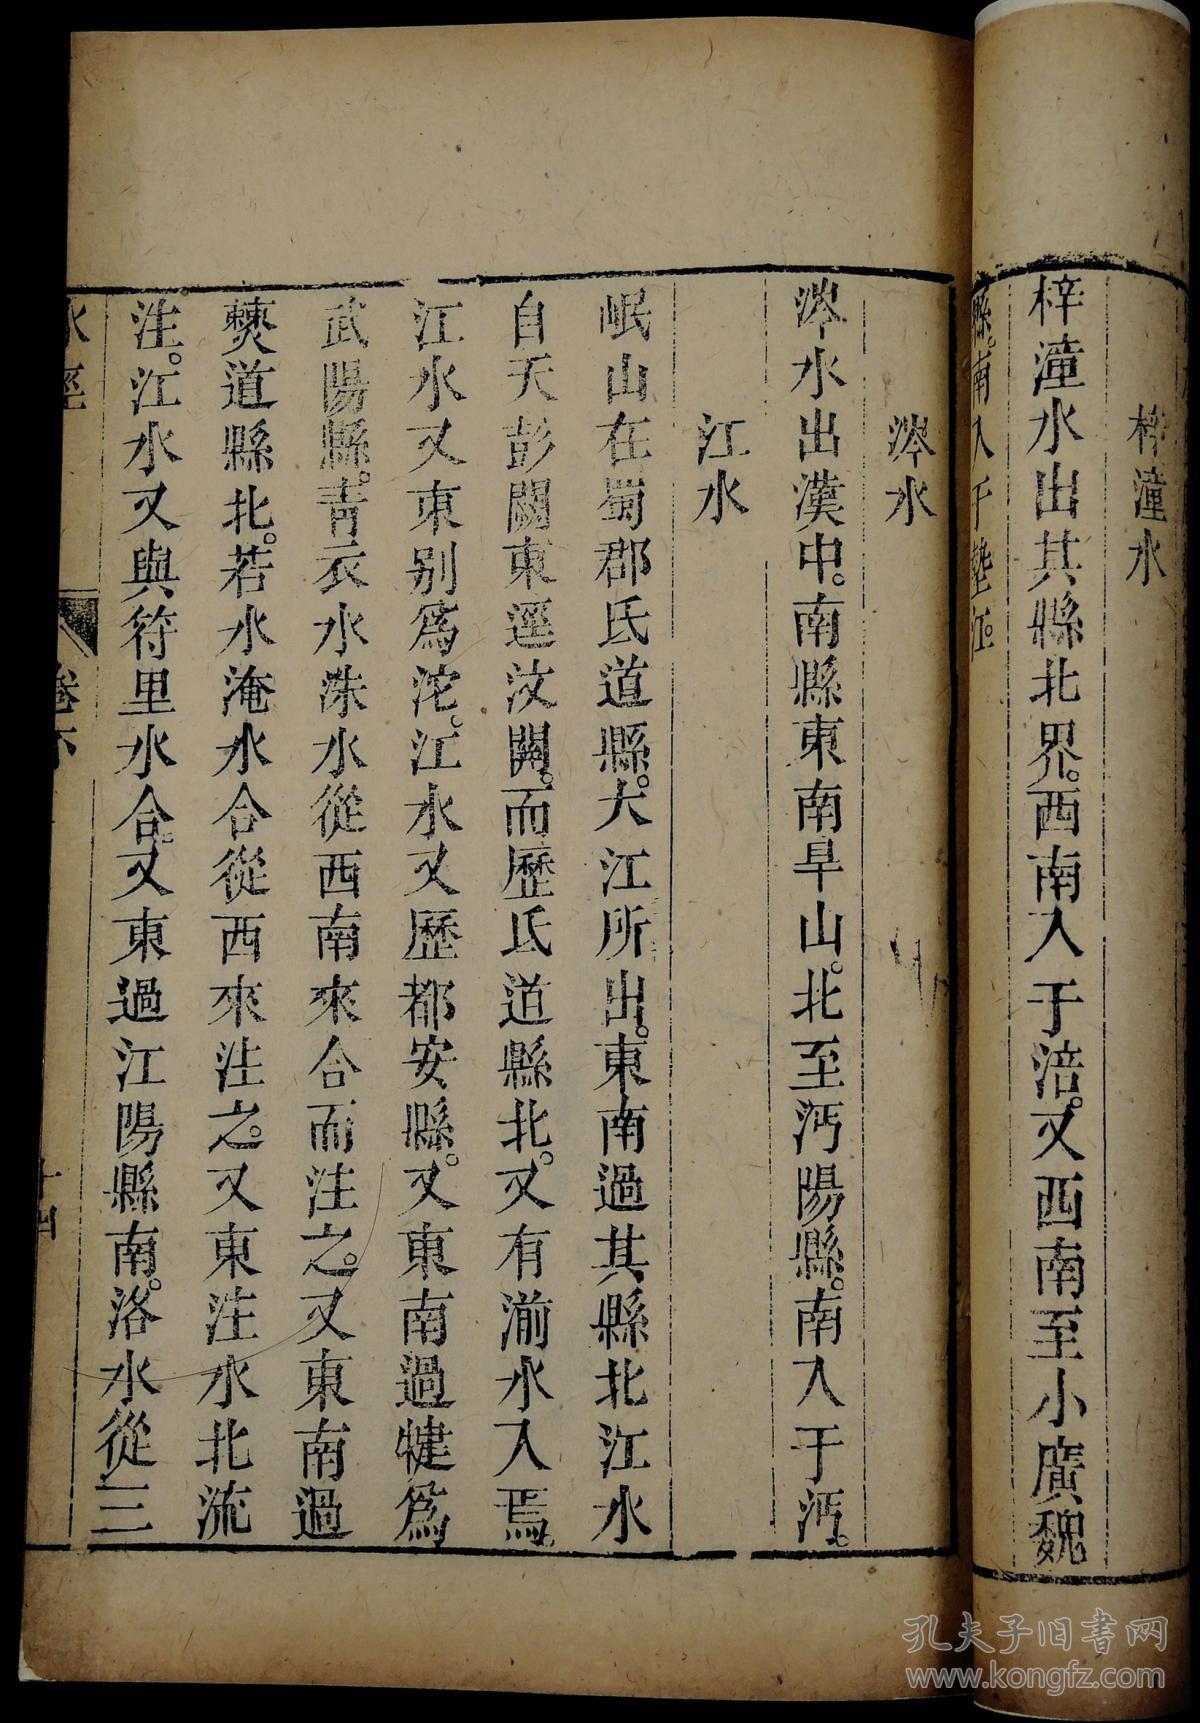 梓潼水
梓潼水出其縣北界。西南入于涪。又西南至小廣魏
縣。南入于墊江。
涔水
涔水出漢中。南縣東南旱山。北至沔陽縣。南入于沔。
江水
岷山在蜀郡氐道縣。大江所出。東南過其縣北江水
自天彭闕東逕汶關。而歷氐道縣北。又有湔水入焉。
江水又東别爲沱。江水又歷都安縣。又東南過犍爲
武陽縣。青衣水洙水從西南來合而注之。又東南過
僰道縣北。若水淹水合從西來注之。又東注水北流
注。江水又與符里水合。又東過江陽縣南。洛水從三
水經 卷六 十四
孔夫子旧书网
www.kongfz.com